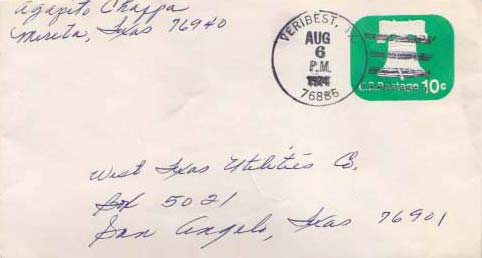 Agapito Chappa
Mereta, Texas 76940
VERIBEST, TX
AUG
6
P.M.
1974
76886
U.S. Postage 10c
West Texas Utilities Co.
Box 5021
San Angelo, Texas 76901